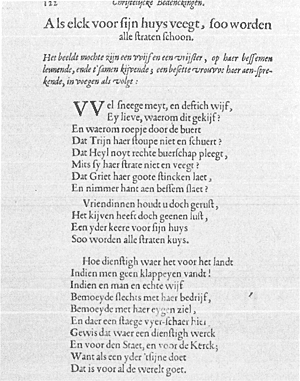 122 Christelijcke Bedenckingen.
Als elck voor sijn huys veegt, soo worden
alle straten schoon.
Het beeldt mochte zijn een wijf en een vrijster, op haer bessemen
leunende, ende t'samen kijvende; een besette vrouwe haer aenspre-
kende, in voegen als volgt:
VVel sneege meyt, en deftich wijf,
Ey lieve, waerom dit gekijf?
En waerom roep je door de buert
Dat Trijn haer stoupe niet en schuert?
Dat Heyl noyt rechte buerschap pleegt,
Mits sy haer strate niet en veegt?
Dat Griet haer goote stincken laet,
En nimmer hant aen bessem slaet?
Vriendinnen houdt u doch gerust,
Het kijven heeft doch geenen lust,
Een yder keere voor sijn huys
Soo worden alle straten kuys.
Hoe dienstigh waer het voor het landt
Indien men geen klappeyen vandt!
Indien en man en echte wijf
Bemoeyde slechts met haer bedrijf,
Bemoeyde met haer eygen ziel,
En daer een staege vyer-schaer hiel,
Gewis dat waer een dienstigh werck
En voor den Staet, en voor de Kerck;
Want als een yder 't sijne doet
Dat is voor al de werelt goet.